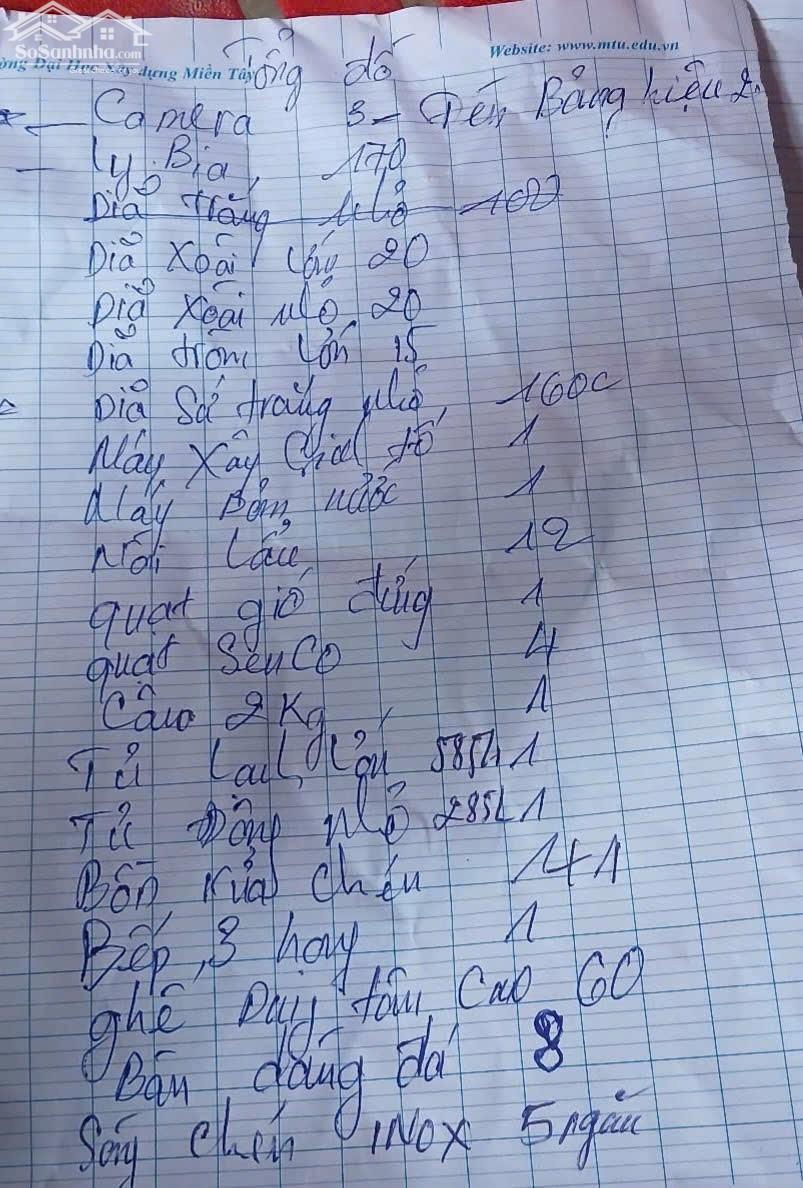 SoSanhnha.com
Website: www.mtu.edu.vn
Dựng Miền Tây
Tổng đồ
Camera 3 - Bảng hiệu 2
Ly Bia 170
Dĩa trắng nhỏ 100
Dĩa Xoài 20
Dĩa Xoài nhỏ 20
Dĩa tròn lớn 15
Dĩa Sứ trắng nhỏ 160c
Máy Xây Sinh tố 1
Máy Bơm nước 1
Nồi Lẩu 12
quạt gió đứng 1
quạt SenCo 4
Cân 2Kg 1
Tủ Lớn 585L 1
Tủ Đông nhỏ 285L 1
Bồn rửa chén 1+1
Bếp, 3 họng 1
ghế Duy tân Cao 60
Bàn đá 8
Sóng chén INOX 5 ngăn